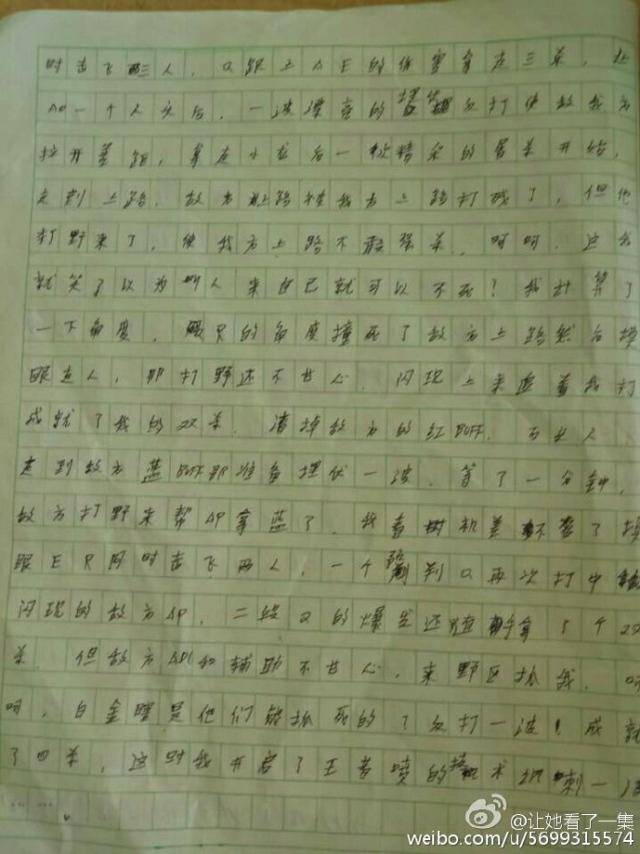 时击飞三人，Q跟上AE的伤害拿走三杀，让
AD一个人头后，一波漂亮的反打使敌我方
拉开差距，拿走小龙后一次精采的屠杀开始，
走到上路，敌方上路被我方上路打残了，但他
打野来了，使我方上路不敢强杀，呵呵，这我
就笑了以为叫人来自己就可以不死？我计算了
一下角度，眼R的角度撞死了敌方上路然后摸
眼进人，那打野还不甘心，闪现上来追着我打
成就了我的双杀，清掉敌方的红BUFF，百步人
走到敌方蓝BUFF那准备埋伏一波，等了一分钟，
敌方打野来帮AP拿蓝了，我看时机差不多了摸
眼ER同时击飞两人，一个预判Q再次打中
闪现的敌方AP，二段Q的爆发还随手拿了个双
杀，但敌方ADC和辅助不甘心，来野区抓我，呵
呵，白金瞎是他们能抓死的？反打一波！成就
了四杀，这时我开启了王者喷的技术
@让她看了一集
weibo.com/u/5699315574